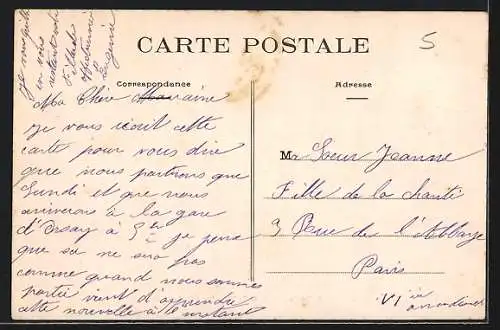 CARTE POSTALE
5
Correspondance
Adresse
Ma Chère Marraine
je vous écrit cette
carte pour vous dire
que nous partirons que
Lundi et que nous
arriverons à la gare
d'Orsay à 5h je pense
que sa ne sera pas
comme quand nous sommes
partie vient d'apprendre
cette nouvelle à l'instant
je vous quitte
en vous
restant votre
filleule
Eugénie
M Soeur Jeanne
Fille de la charité
3 Rue de l'Abbaye
Paris
VI